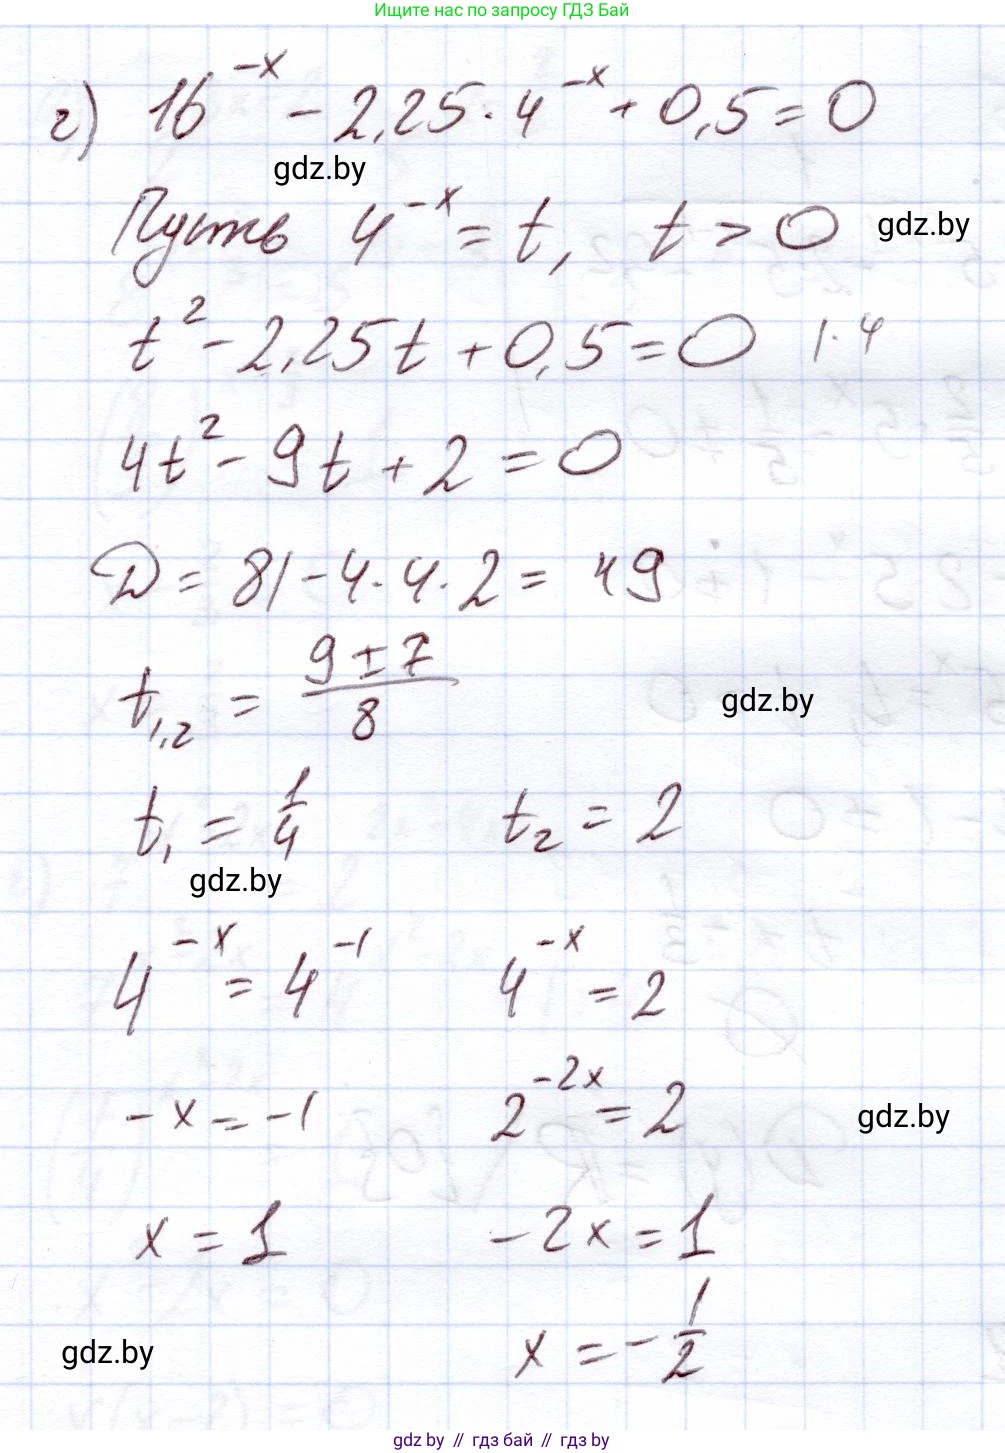 Ищите нас по запросу ГДЗ Бай
г) 16^{-x} - 2,25 · 4^{-x} + 0,5 = 0
gdz.by
Пусть 4^{-x} = t, t > 0
gdz.by
t² - 2,25t + 0,5 = 0 | · 4
4t² - 9t + 2 = 0
D = 81 - 4 · 4 · 2 = 49
t_{1,2} = \frac{9 ± 7}{8}
gdz.by
t₁ = \frac{1}{4} t₂ = 2
gdz.by
4^{-x} = 4^{-1} 4^{-x} = 2
-x = -1 2^{-2x} = 2
gdz.by
x = 1 -2x = 1
gdz.by
x = -\frac{1}{2}
gdz by // гдз бай // гдз by